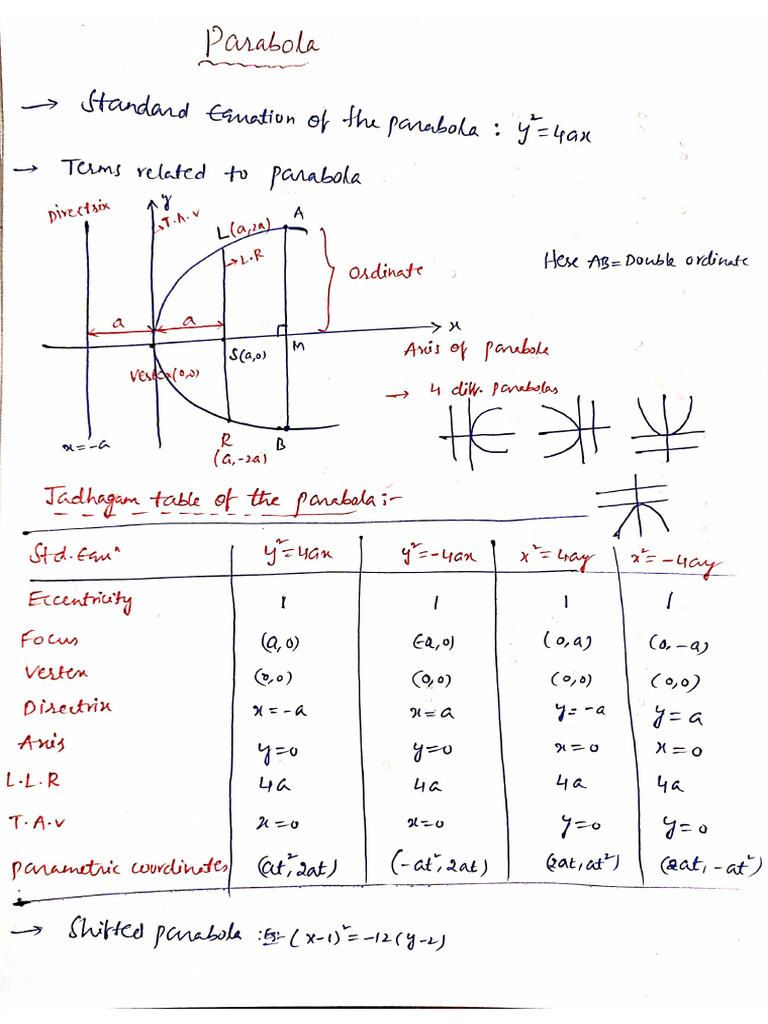 Parabola
→ Standard Equation of the parabola : y²=4ax
→ Terms related to parabola
Directrix
y
T.A.V
L(a,2a)
A
→L.R
Ordinate
Here AB=Double ordinate
a
a
x
S(a,0)
M
Axis of parabola
Vertex(0,0)
→ 4 diff. parabolas
x=-a
R
(a,-2a)
B
Jadhagam table of the parabola:-
Std.Equⁿ y²=4ax y²=-4ax x²=4ay x²=-4ay
Eccentricity 1 1 1 1
Focus (a,0) (-a,0) (0,a) (0,-a)
Vertex (0,0) (0,0) (0,0) (0,0)
Directrix x=-a x=a y=-a y=a
Axis y=0 y=0 x=0 x=0
L.L.R 4a 4a 4a 4a
T.A.V x=0 x=0 y=0 y=0
parametric coordinates (at²,2at) (-at²,2at) (2at,at²) (2at,-at²)
→ Shifted parabola :Eg:- (x-1)²=-12(y-2)